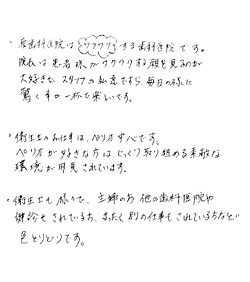 ・原歯科医院は ワクワク する歯科医院 です。
院長は患者様がワクワクする顔を見るのが
大好きな、スタッフの私達ですら、毎日の様に
驚く事が一杯で楽しいです。
・衛生士のお仕事は、ペリオ中心です。
ペリオが好きな方は じっくり取り組める素敵な
環境が用意されています。
・衛生士も 様々で、主婦の方 他の歯科医院や
健診も されている方、まったく 別の仕事も されている方など
色とりどりです。